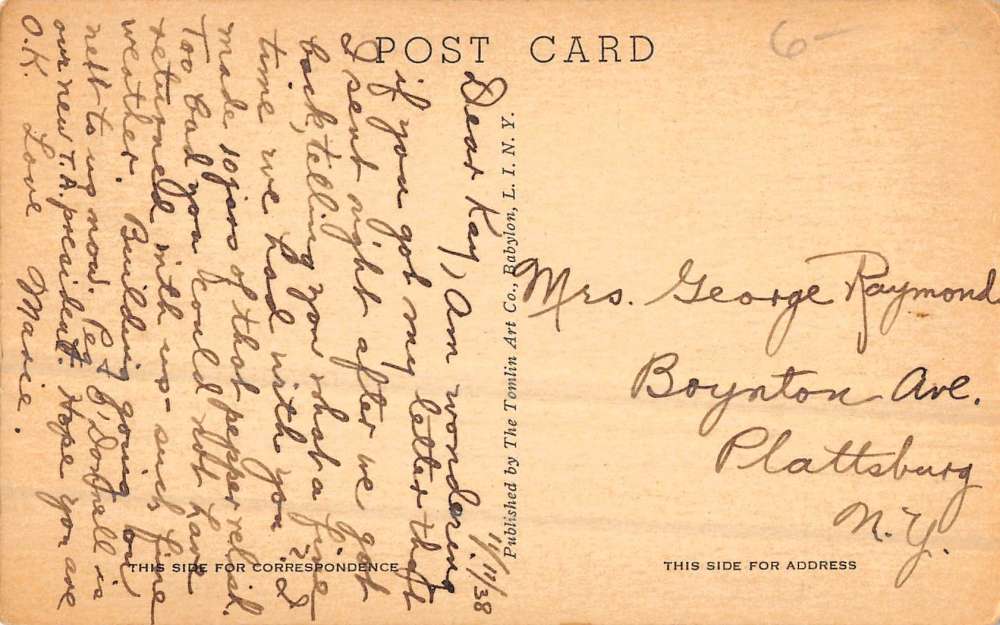 POST CARD
6-
11/11/38
Dear Kay, Am wondering
if you got my letter that
I sent right after we got
back, telling you what a fine
time we had with you? I
made 10 jars of that pepper relish.
Too bad you could not have
returned with us - such fine
weather. Building going on
next to us now. Peg O'Donnell is
our new T.A. president. Hope you are
O.K. Love Marie.
THIS SIDE FOR CORRESPONDENCE
Published by The Tomlin Art Co., Babylon, L. I. N. Y.
Mrs. George Raymond
Boynton Ave.
Plattsburg
N.Y.
THIS SIDE FOR ADDRESS